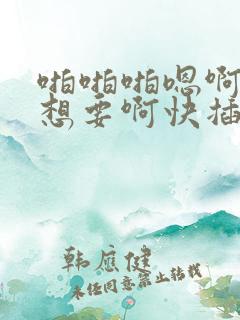 啪啪啪嗯啊
想要啊快插
韩应健
未经同意禁止转载